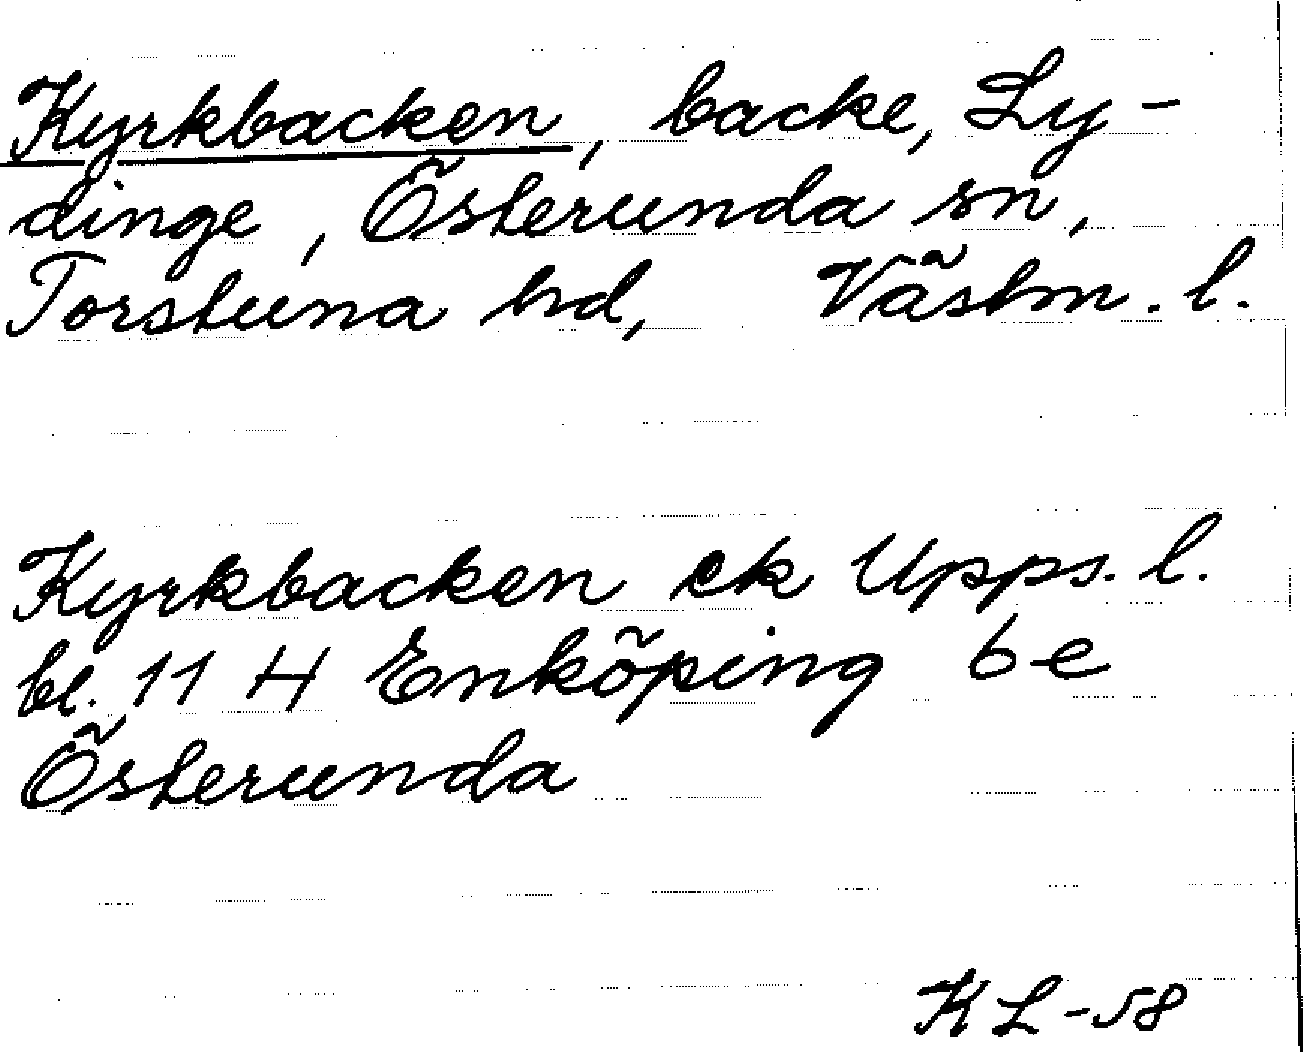 Kyrkbacken, backe, Ly-
dinge, Österunda sn,
Torstuna hd, Västm. l.
Kyrkbacken ek Upps. l.
bl. 11 H Enköping 6e
Österunda
KL-58